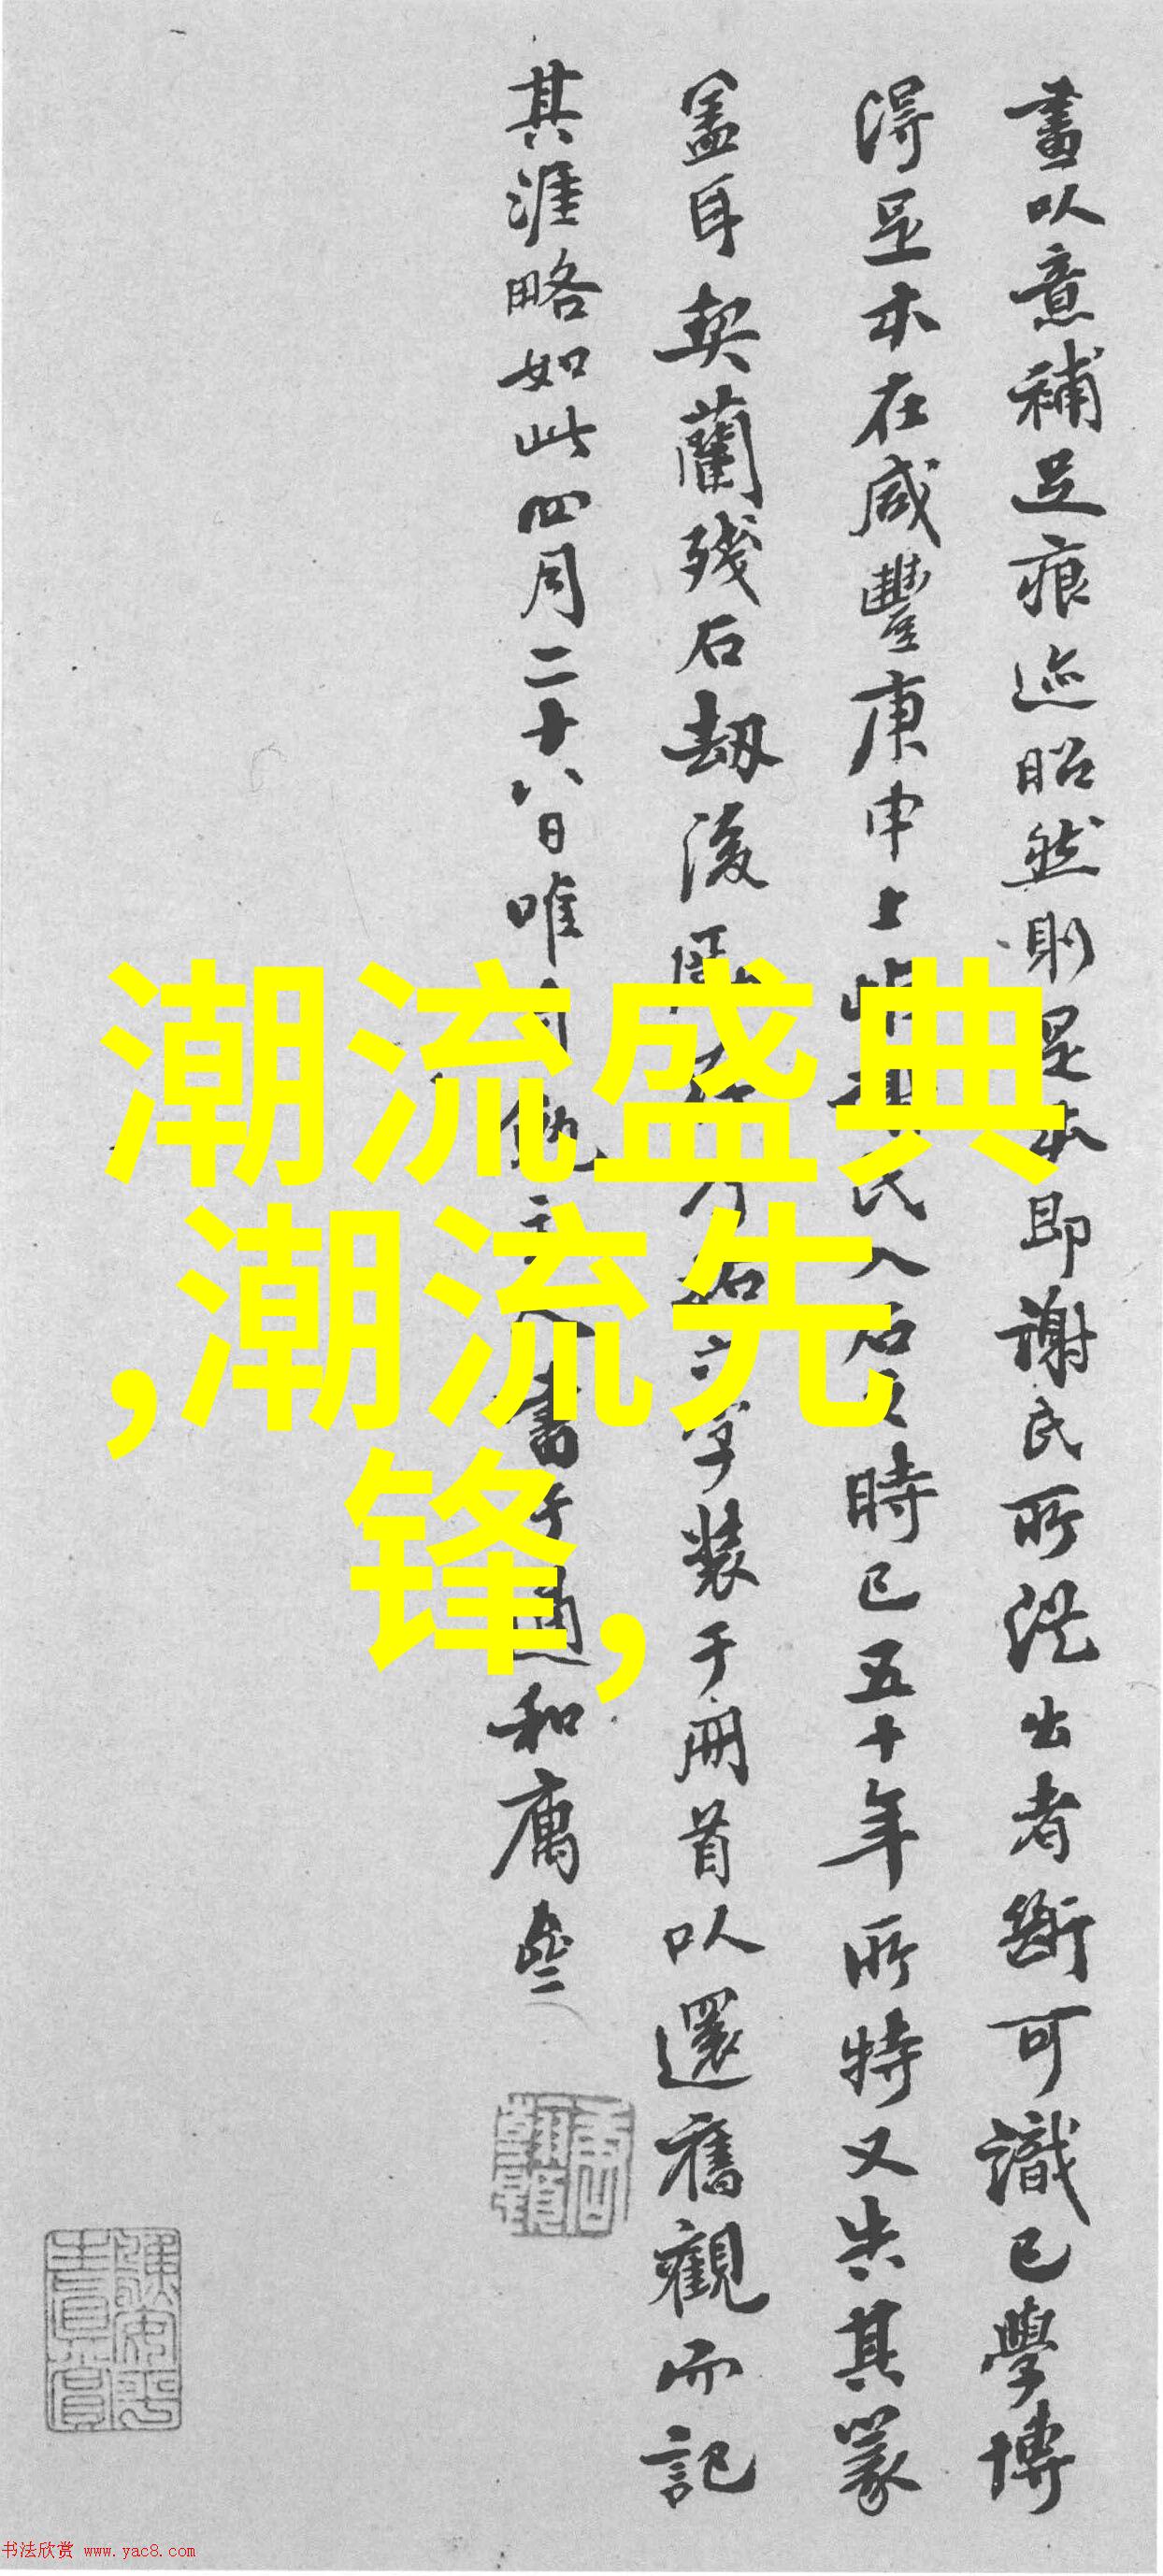 畫以意補足痕迹昭然則是本即謝氏所從出者斷可識已學博
得足本在咸豐庚申上 氏入石之時已五十年所特又失其篆
蓋耳契蘭殘石劫後 字裝于冊首以還舊觀而記
其涯略如此四月二十八日唯 書于 和廎
潮流盛典
,潮流先
锋,
书法欣赏 www.yac8.com